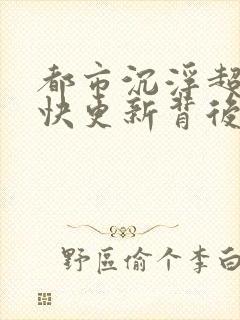 都市沉浮超
快更新背後
野區偷个李白